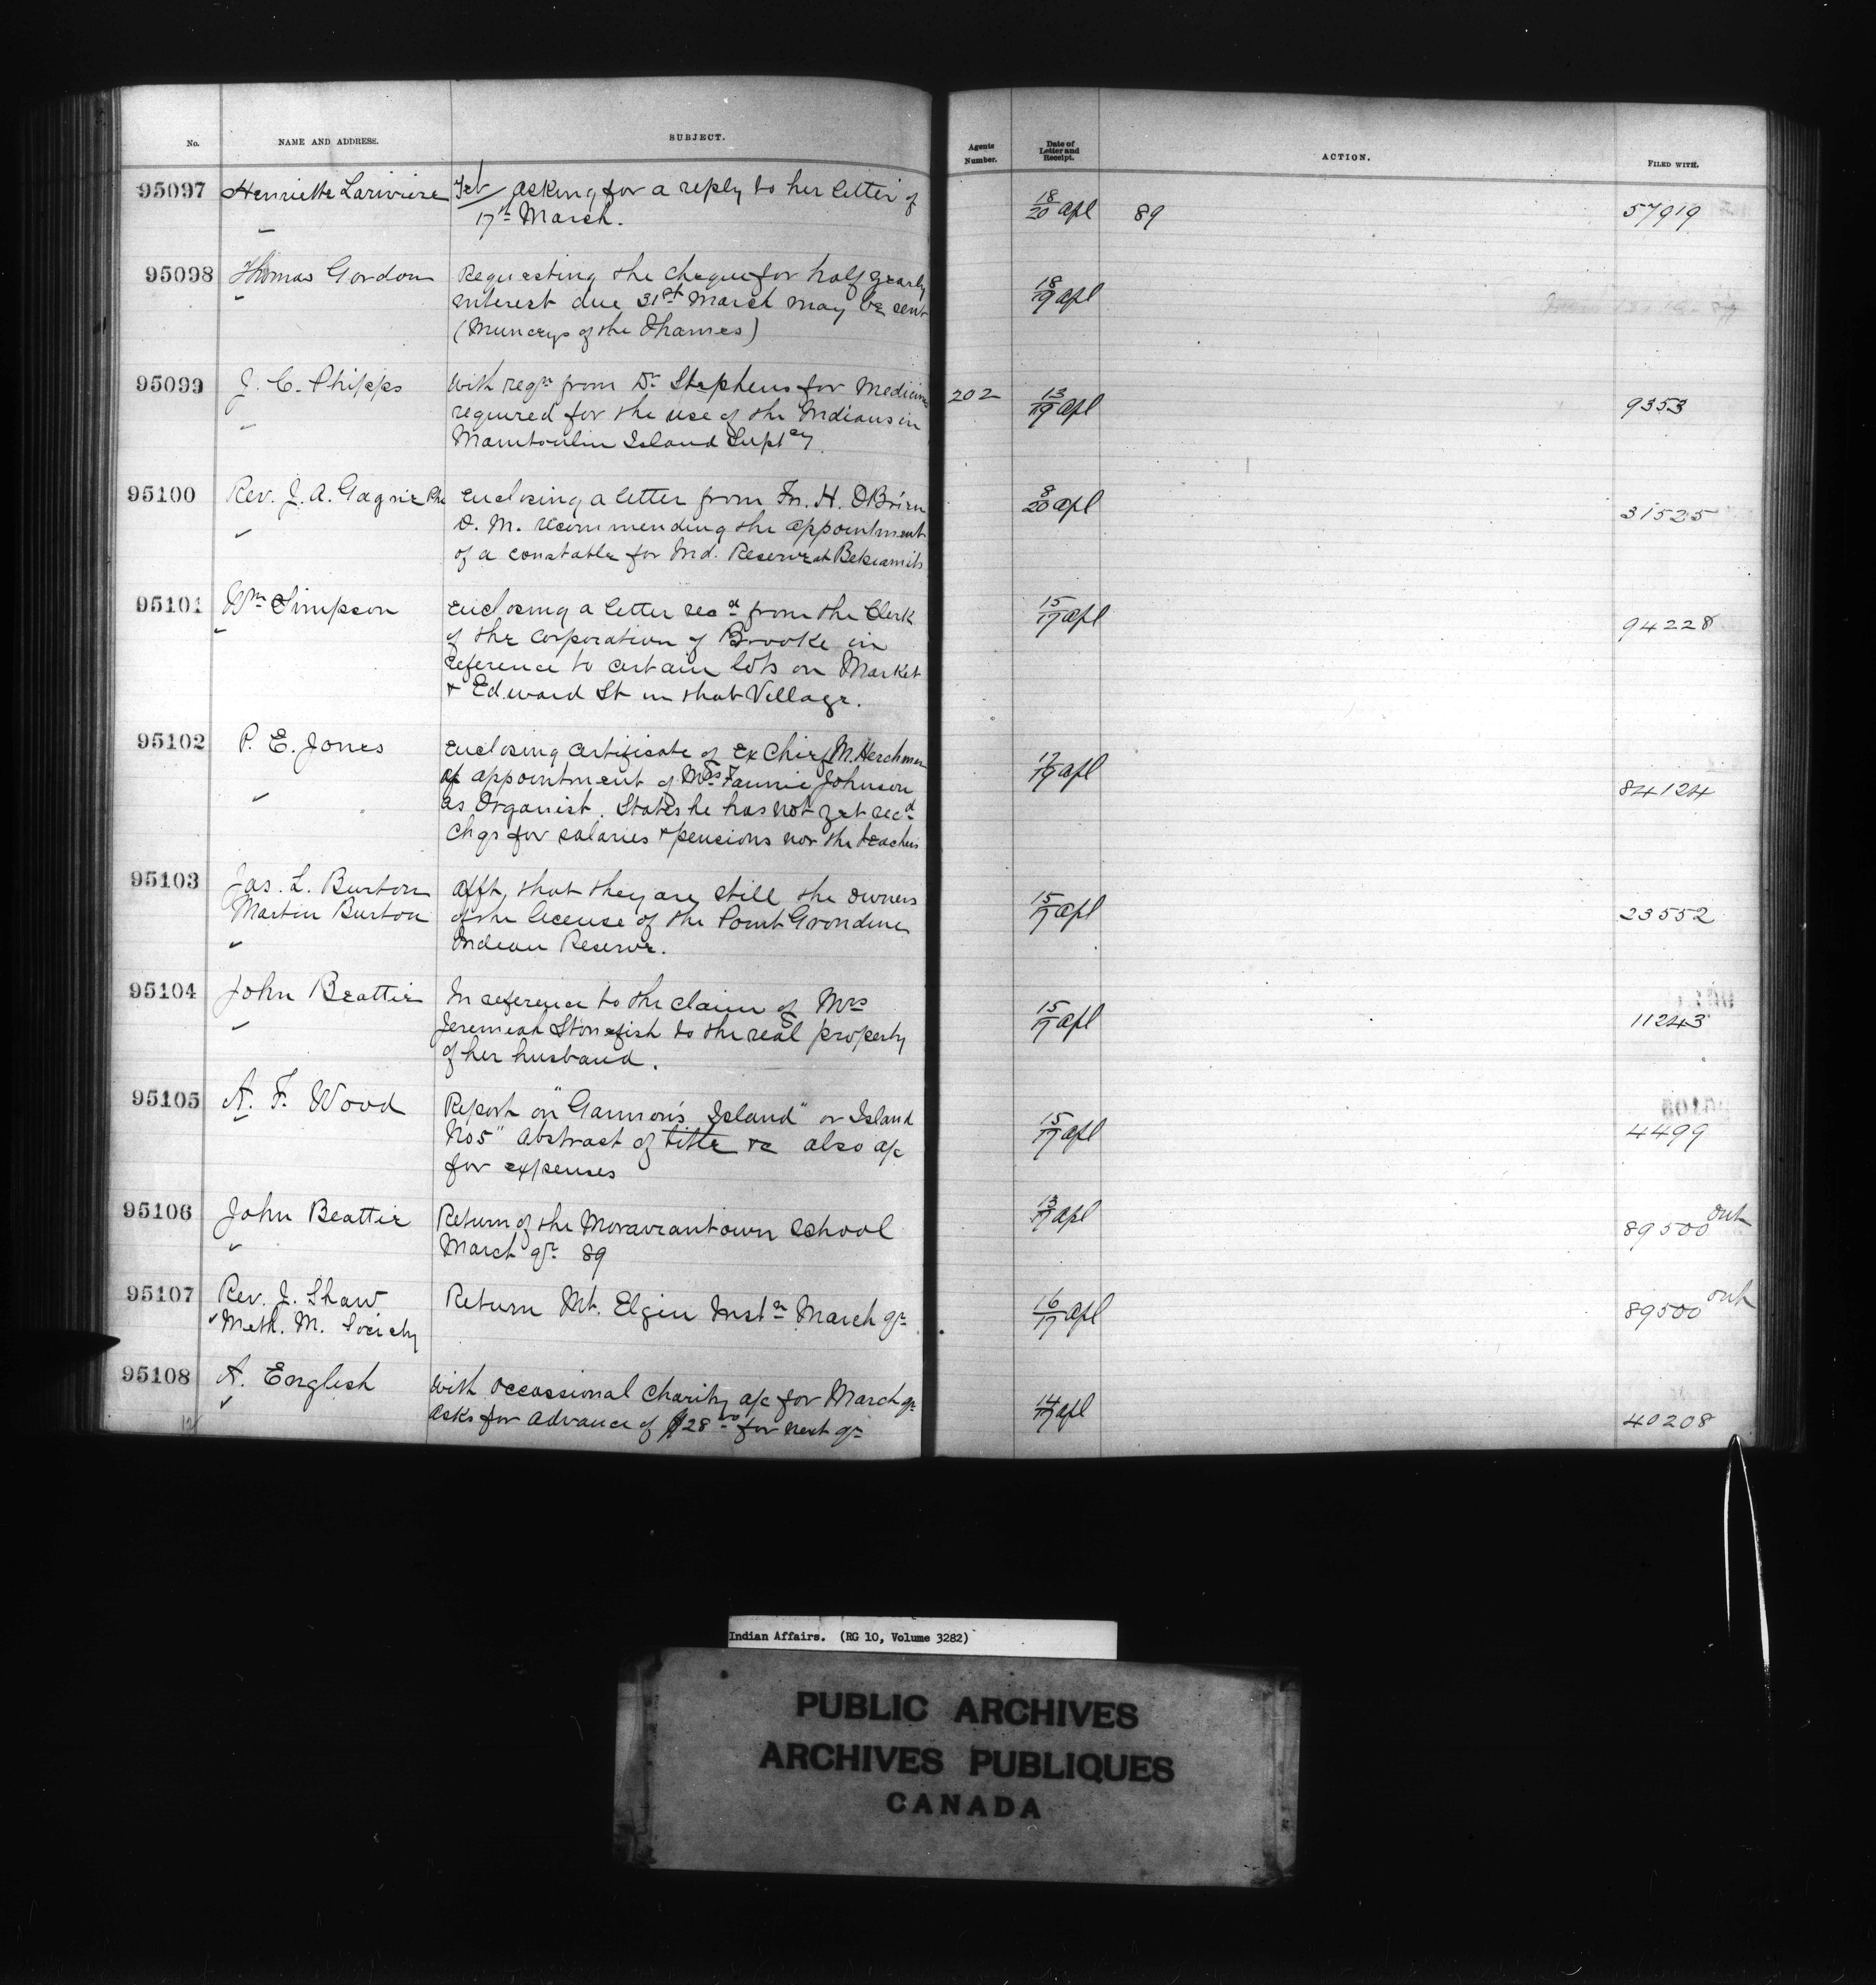 No. NAME AND ADDRESS. SUBJECT. Agents Number. Date of Letter and Receipt. ACTION. FILED WITH.
95097 Henriette Lariviere Feb/ asking for a reply to her letter of 18/20 Apl 89 57919
17th March.
95098 Thomas Gordon Requesting the cheque for half yearly 18/19 Apl
interest due 31st March may be sent
(Munceys of the Thames)
95099 J. C. Phipps With reqn from Dr Stephens for Medicine 202 13/19 Apl 9353
required for the use of the Indians in
Manitoulin Island Suptcy.
95100 Rev. J. A. Gagnie Pbe Enclosing a letter from Fr. H. O'Brien 8/20 Apl 31525
D. M. recommending the appointment
of a constable for Ind. Reserve at Betsiamits
95101 Wm Simpson Enclosing a letter recd from the Clerk 15/17 Apl 94228
of the Corporation of Brooke in
reference to certain lots on Market
& Edward St in that Village.
95102 P. E. Jones Enclosing certificate of Ex Chief M. Herchmer 17/19 Apl 84124
of appointment of Mrs Fannie Johnson
as Organist. States he has not yet recd
chqs for salaries & pensions nor the teachers
95103 Jas. L. Burton Afft, that they are still the owners 15/17 Apl 23552
Martin Burton of the license of the Point Grondine
Indian Reserve.
95104 John Beattie In reference to the claim of Mrs 15/17 Apl 11243
Jeremiah Stonefish to the real property
of her husband.
95105 A. F. Wood Report on "Gannon's Island" or Island 15/17 Apl 4499
No 5" Abstract of title &c also a/c
for expenses
95106 John Beattie Return of the Moraviantown School 13/17 Apl 89500 out
March qr 89
95107 Rev. J. Shaw Return Mt. Elgin Instn March qr 16/17 Apl 89500 out
Meth. M. Society
95108 A. English With occassional charity a/c for March qr 14/17 Apl 40208
asks for advance of $28 00 for next qr
Indian Affairs. (RG 10, Volume 3282)
PUBLIC ARCHIVES
ARCHIVES PUBLIQUES
CANADA